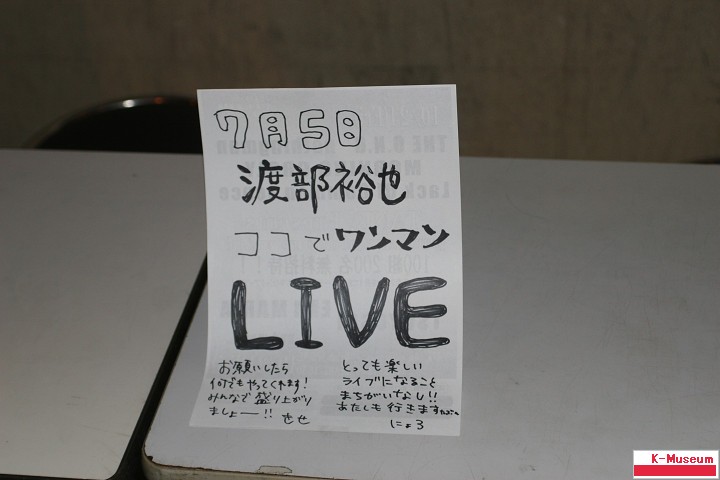 7月5日
渡部裕也
ココでワンマン
LIVE
お願いしたら
何でもやってくれます!
みんなで盛り上がり
ましょー!!
とっても楽しい
ライブになること
まちがいなし!!
あたしも行きます
にょろ
K-Museum